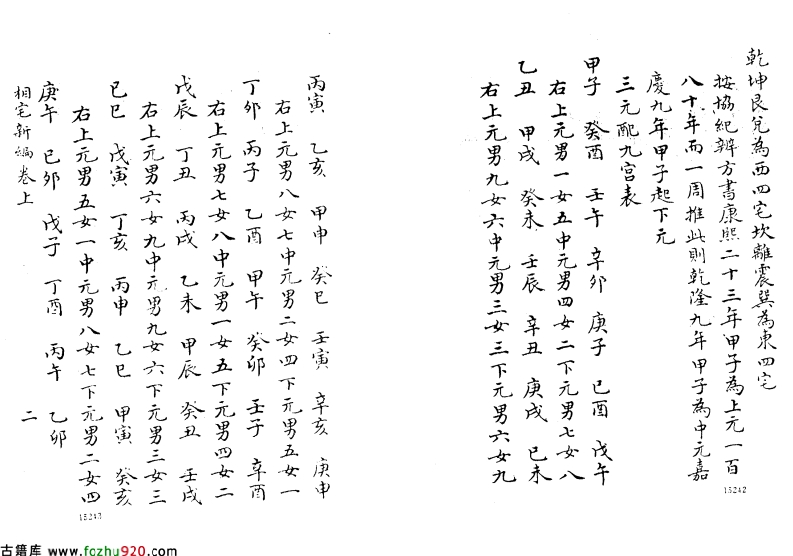 乾坤艮兌為西四宅坎離震巽為東四宅
按協紀辨方書康熙二十三年甲子為上元一百
八十年而一周推此則乾隆九年甲子為中元嘉
慶九年甲子起下元
三元配九宮表
甲子 癸酉 壬午 辛卯 庚子 己酉 戊午
右上元男一女五中元男四女二下元男七女八
乙丑 甲戌 癸未 壬辰 辛丑 庚戌 己未
右上元男九女六中元男三女三下元男六女九
15242
丙寅 乙亥 甲申 癸巳 壬寅 辛亥 庚申
右上元男八女七中元男二女四下元男五女一
丁卯 丙子 乙酉 甲午 癸卯 壬子 辛酉
右上元男七女八中元男一女五下元男四女二
戊辰 丁丑 丙戌 乙未 甲辰 癸丑 壬戌
右上元男六女九中元男九女六下元男三女三
己巳 戊寅 丁亥 丙申 乙巳 甲寅 癸亥
右上元男五女一中元男八女七下元男二女四
庚午 己卯 戊子 丁酉 丙午 乙卯
相宅新編卷上 二
15243
古籍库 www.fozhu920.com